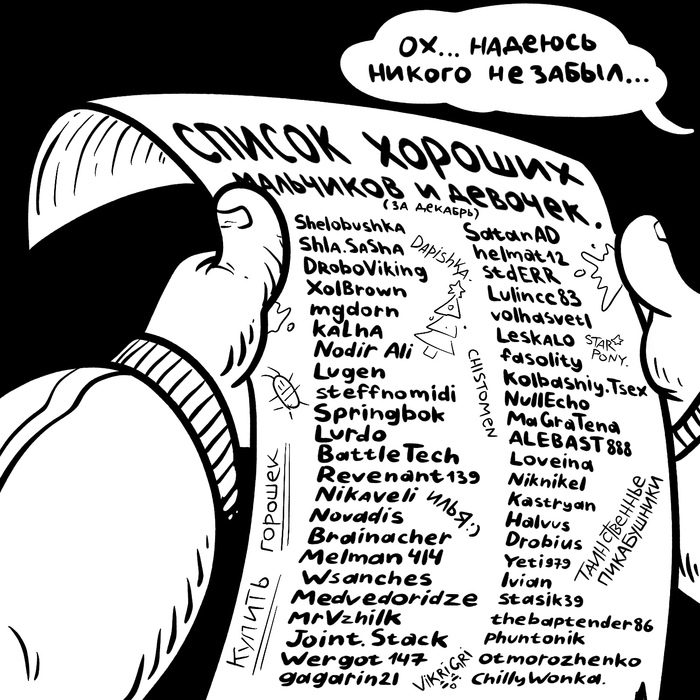 ОХ... НАДЕЮСЬ
НИКОГО НЕ ЗАБЫЛ...
СПИСОК ХОРОШИХ
МАЛЬЧИКОВ И ДЕВОЧЕК.
(ЗА ДЕКАБРЬ)
Shelobushka
Shla.Sasha
DroboViking
XolBrown
mgdorn
kalha
Nodir Ali
Lugen
steffnomidi
Springbok
Lurdo
BattleTech
Revenant139
Nikaveli
Novadis
Brainacher
Melman 414
Wsanches
Medvedoridze
mrVzhilk
Joint.Stack
Wergot 147
gagarin21
Dapishka.
CHISTOMEN
ИЛЬЯ:)
VIKRIGRI
КУПИТЬ ГОРОШЕК
SatanAD
helmat12
stdERR
Lulincc83
volhasvetl
Leskalo
fasolity
Kolbashiy.Tsex
NullEcho
MaGraTena
ALEBAST888
Loveina
Niknikel
Kastryan
Halvus
Drobius
Yeti979
Ivian
Stasik39
thebaptender86
Phuntonik
Otmorozhenko
ChillyWonka.
STAR
PONY.
ТАИНСТВЕННЫЕ
ПИКАБУШНИКИ